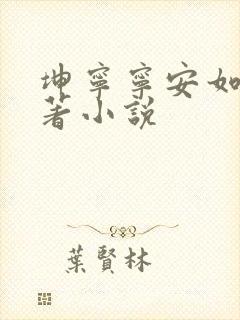 坤寧寧安如
著小說
葉賢林